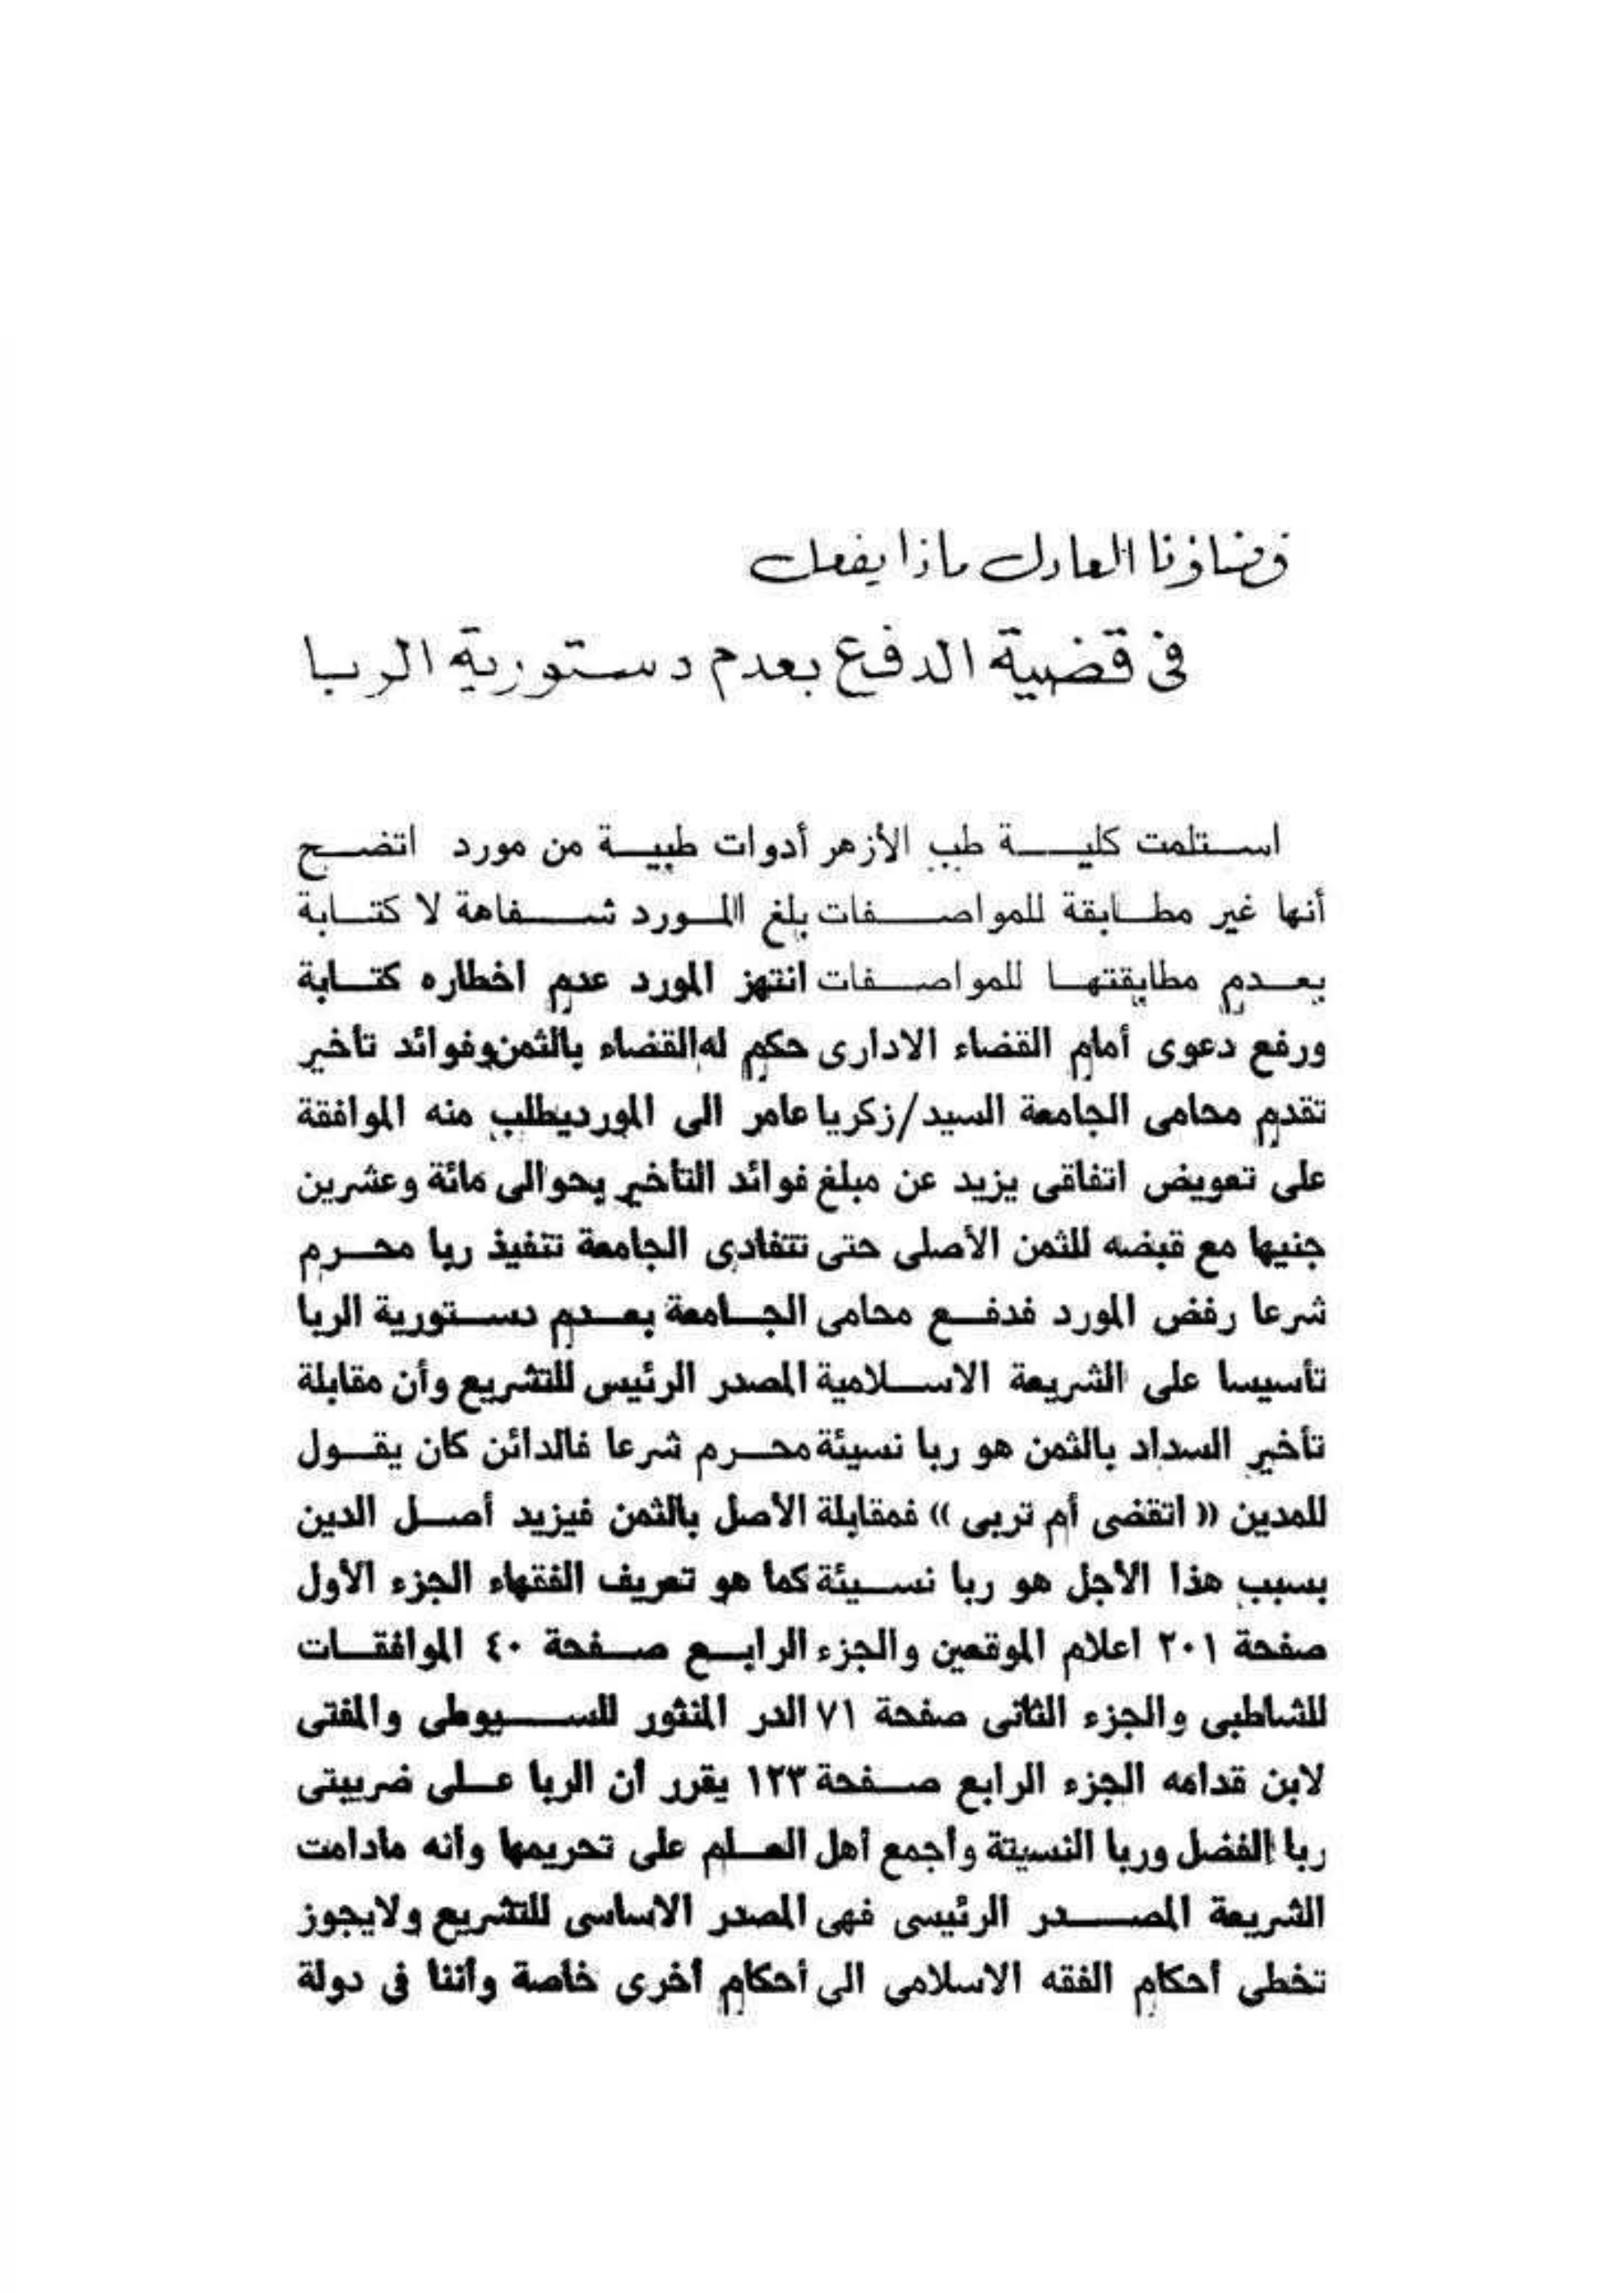 قضاؤنا العادل ماذا يفعل
فى قضية الدفع بعدم دستورية الربا
استلمت كلية طب الأزهر أدوات طبية من مورد اتضح
أنها غير مطابقة للمواصفات بلغ المورد شفاهة لا كتابة
بعدم مطابقتها للمواصفات انتهز المورد عدم اخطاره كتابة
ورفع دعوى أمام القضاء الادارى حكم له القضاء بالثمن وفوائد تأخير
تقدم محامى الجامعة السيد/زكريا عامر الى المورد يطلب منه الموافقة
على تعويض اتفاقى يزيد عن مبلغ فوائد التأخير بحوالى مائة وعشرين
جنيها مع قبضه للثمن الأصلى حتى تتفادى الجامعة تنفيذ ربا محرم
شرعا رفض المورد فدفع محامى الجامعة بعدم دستورية الربا
تأسيسا على الشريعة الاسلامية المصدر الرئيس للتشريع وأن مقابلة
تأخير السداد بالثمن هو ربا نسيئة محرم شرعا فالدائن كان يقول
للمدين « اتقضى أم تربى » فمقابلة الأصل بالثمن فيزيد أصل الدين
بسبب هذا الأجل هو ربا نسيئة كما هو تعريف الفقهاء الجزء الأول
صفحة ٢٠١ اعلام الموقعين والجزء الرابع صفحة ٤٠ الموافقات
للشاطبى والجزء الثانى صفحة ٧١ الدر المنثور للسيوطى والمفتى
لابن قدامه الجزء الرابع صفحة ١٢٣ يقرر أن الربا على ضريبتى
ربا الفضل وربا النسيتة وأجمع أهل العلم على تحريمها وأنه مادامت
الشريعة المصدر الرئيسى فهى المصدر الاساسى للتشريع ولايجوز
تخطى أحكام الفقه الاسلامى الى أحكام أخرى خاصة وأننا فى دولة